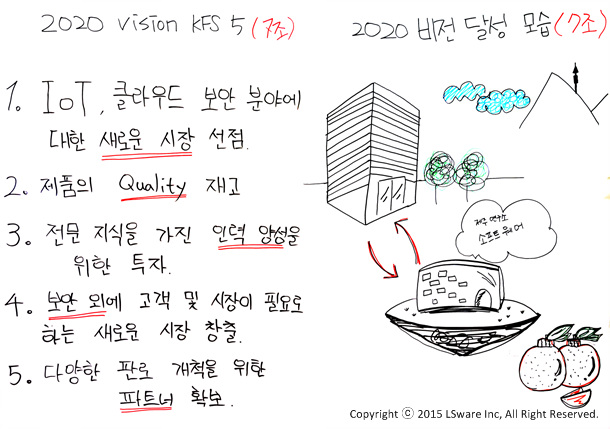 2020 Vision KFS 5 (7조)
1. IoT, 클라우드 보안 분야에
대한 새로운 시장 선점.
2. 제품의 Quality 재고
3. 전문 지식을 가진 인력 양성을
위한 투자.
4. 보안 외에 고객 및 시장이 필요로
하는 새로운 시장 창출.
5. 다양한 판로 개척을 위한
파트너 확보.
2020 비전 달성 모습 (7조)
제주 연구소
소프트웨어
Copyright ⓒ 2015 LSware Inc, All Right Reserved.